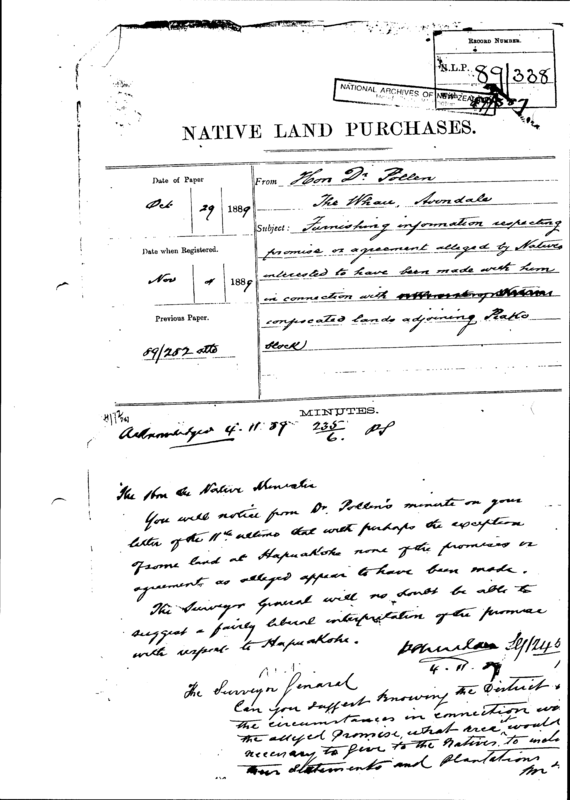 RECORD NUMBER.
N.L.P. 89/338
NATIONAL ARCHIVES OF NEW ZEALAND
NATIVE LAND PURCHASES.
Date of Paper
Oct 29 1889
Date when Registered.
Nov 4 1889
Previous Paper.
89/252
From Hon Dr Pollen
The Whau, Avondale
Subject: Furnishing information respecting
promise or agreement alleged by Natives
interested to have been made with him
in connection with
confiscated lands adjoining Piako
block
MINUTES.
Acknowledged 4.11.89 235/6.
The Hon the Native Minister
You will notice from Dr. Pollen's minute on your
letter of the 11th ultimo that with perhaps the exception
of some land at Hapuakohe none of the promises or
agreements as alleged appear to have been made.
The Surveyor General will no doubt be able to
suggest a fairly liberal interpretation of the promise
with respect to Hapuakohe.
4.11.89
The Surveyor General
Can you suggest knowing the District &
the circumstances in connection
the alleged Promise, what area would
necessary to give to the Natives, to
settlements and Plantations